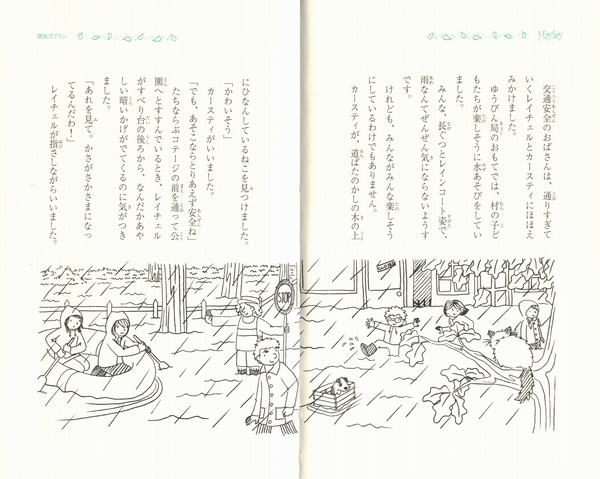 Hayley
交通安全のおばさんは、通りすぎて
いくレイチェルとカースティにほほえ
みかけました。
ゆうびん局のおもてでは、村の子ど
もたちが楽しそうに水あそびをしてい
ました。
みんな、長ぐつとレインコート姿で、
雨なんてぜんぜん気にならないようす
です。
けれども、みんながみんな楽しそう
にしているわけでもありません。
カースティが、道ばたのかしの木の上
にひなんしているねこを見つけました。
「かわいそう」
カースティがいいました。
「でも、あそこならとりあえず安全ね」
たちならぶコテージの前を通って公
園へとすすんでいるとき、レイチェル
がすべり台の後ろから、なんだかあや
しい暗いかげがでてくるのに気がつき
ました。
「あれを見て。かさがさかさまになっ
てるんだわ！」
レイチェルが指さしながらいいました。
STOP